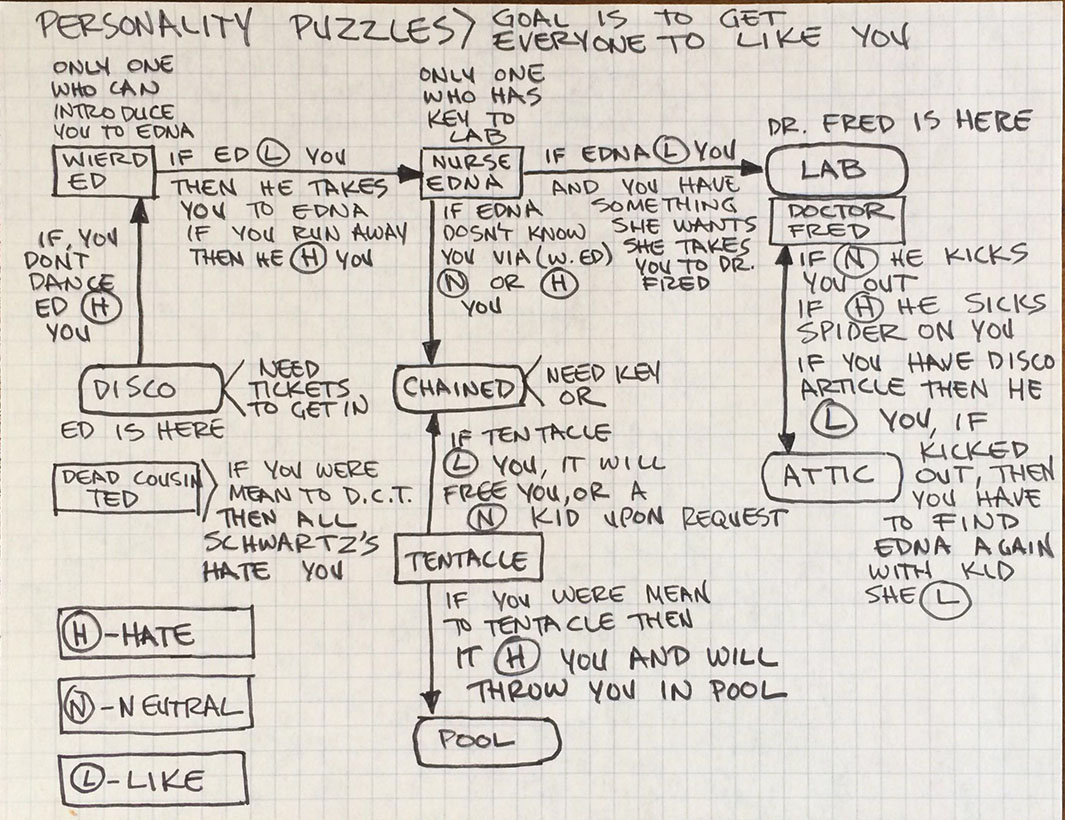 PERSONALITY PUZZLES> GOAL IS TO GET
EVERYONE TO LIKE YOU
ONLY ONE
WHO CAN
INTRODUCE
YOU TO EDNA
WIERD
ED
IF ED (L) YOU
THEN HE TAKES
YOU TO EDNA
IF YOU RUN AWAY
THEN HE (H) YOU
ONLY ONE
WHO HAS
KEY TO
LAB
NURSE
EDNA
IF EDNA (L) YOU
AND YOU HAVE
SOMETHING
SHE WANTS
SHE TAKES
YOU TO DR.
FRED
DR. FRED IS HERE
LAB
DOCTOR
FRED
IF (N) HE KICKS
YOU OUT
IF (H) HE SICKS
SPIDER ON YOU
IF YOU HAVE DISCO
ARTICLE THEN HE
(L) YOU, IF
KICKED
OUT, THEN
YOU HAVE
TO FIND
EDNA AGAIN
WITH KID
SHE (L)
ATTIC
IF EDNA
DOSN'T KNOW
YOU VIA (W. ED)
(N) OR (H)
YOU
IF, YOU
DONT
DANCE
ED (H)
YOU
DISCO
NEED
TICKETS
TO GET IN
ED IS HERE
CHAINED
NEED KEY
OR
IF TENTACLE
(L) YOU, IT WILL
FREE YOU, OR A
(N) KID UPON REQUEST
DEAD COUSIN
TED
IF YOU WERE
MEAN TO D.C.T.
THEN ALL
SCHWARTZ'S
HATE YOU
TENTACLE
IF YOU WERE MEAN
TO TENTACLE THEN
IT (H) YOU AND WILL
THROW YOU IN POOL
POOL
(H)-HATE
(N)-NEUTRAL
(L)-LIKE